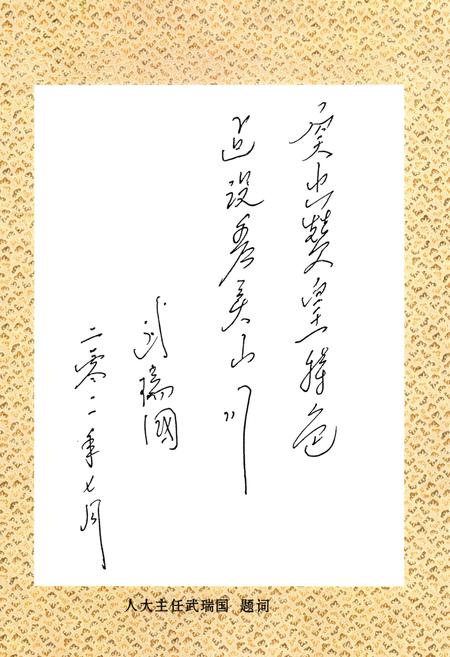 突出赞皇特色
建设秀美山川
武瑞国
二零一一年七月
人大主任武瑞国 题词